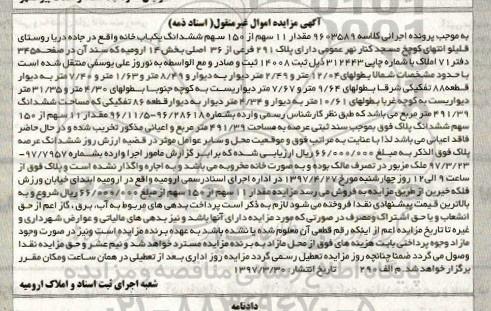 آگهی مزایده اموال غیرمنقول( اسناد ذمه)
به موجب پرونده اجرائی کلاسه 9603589 مقدار 11 سهم از 150 سهم ششدانگ یکباب خانه واقع در جاده دریا روستای
قلیلو انتهای کوچه مسجد کنار نهر عمومی دارای پلاک 291 فرعی از 36 اصلی بخش 14 ارومیه که سند آن در صفحه 345
دفتر 71 املاک با شماره چاپی 312443 ذیل ثبت 14008 ثبت و صادر و مع الواسطه به نوروز علی یوسفی منتقل شده است
با حدود مشخصات شمالا بطولهای 12/04 متر و 2/49 متر دیوار به دیوار و 8/49 متر و 1/63 متر و 7/40 متر به دیوار
قطعه 88 تفکیکی شرقا بطولهای 9/64 متر و 7/67 متر دیواریست به کوچه جنوبا بطولهای 4/30 متر و 31/35 متر
دیواریست به کوچه غربا بطولهای 10/61 متر به دیوار و 4/34 متر دیوار به دیوار قطعه 86 تفکیکی که مساحت ششدانگ
491/39 متر مربع می باشد که طبق نظر کارشناس رسمی وارده بشماره 96/28618-96/11/5 مقدار 11 سهم از 150
سهم ششدانگ پلاک فوق بموجب سند ثبتی عرصه به مساحت 491/39 متر مربع و اعیانی مذکور تخریب شده و در حال حاضر
فاقد اعیانی می باشد لذا با عنایت به مراتب فوق و موقعیت محل و سایر عوامل موثر در قضیه ارزش روز ششدانگ عرصه
پلاک فوق الذکر به مبلغ 66/000/000 ریال ارزیابی می گردد که برابر گزارش مامور اجرا وارده بشماره 97/7957-
97/3/23 ملک مزبور در تصرف مالک بوده و به صورت خانه مخروبه می باشد و به اجاره واگذار نشده است و پلاک فوق از
ساعت 9 الی 12 روز چهارشنبه مورخ 1397/4/27 در اداره اجرای اسناد رسمی ارومیه واقع در ارومیه ابتدای خیابان ورزش
فلکه خیرین از طریق مزایده به فروش می رسد مزایده مقدار 11 سهم از 150 سهم از مبلغ 66/000/000 ریال شروع و به
بالاترین قیمت پیشنهادی نقدا فروخته می شود لازم به ذکر است پرداخت بدهی های مربوط به آب، برق، گاز اعم از حق
انشعاب و یا حق اشتراک و مصرف در صورتی که مورد مزایده دارای آنها باشد و نیز بدهی های مالیاتی و عوارض شهرداری و
غیره تا تاریخ مزایده اعم از اینکه رقم قطعی آن معلوم شده یا نشده باشد به عهده برنده مزایده است و نیز در صورت وجود
مازاد وجوه پرداختی بابت هزینه های فوق از محل مازاد به برنده مزایده مسترد خواهد شد و نیم عشر و حق مزایده نقدا
وصول می گردد ضمنا چنانچه روز مزایده تعطیل رسمی گردد مزایده روز اداری بعد از تعطیلی در همان ساعت و مکان مقرر
برگزار خواهد شد. م الف 290 تاریخ انتشار: 1397/3/30
شعبه اجرای ثبت اسناد و املاک ارومیه
دادنامه